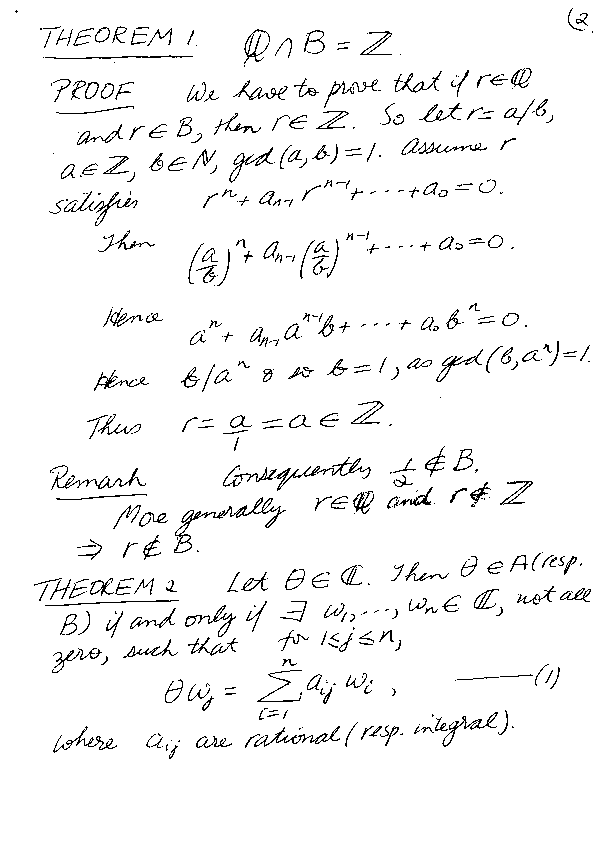 (2.
THEOREM 1. ℚ ∩ B = ℤ.
PROOF We have to prove that if r ∈ ℚ
and r ∈ B, then r ∈ ℤ. So let r = a/b,
a ∈ ℤ, b ∈ N, gcd(a, b) = 1. Assume r
satisfies rⁿ + aₙ₋₁ rⁿ⁻¹ + ---- + a₀ = 0.
Then (a/b)ⁿ + aₙ₋₁ (a/b)ⁿ⁻¹ + ---- + a₀ = 0.
Hence aⁿ + aₙ₋₁ aⁿ⁻¹b + ---- + a₀ bⁿ = 0.
Hence b/aⁿ & so b = 1, as gcd(b, aⁿ) = 1.
Thus r = a/1 = a ∈ ℤ.
Remark Consequently 1/2 ∉ B.
More generally r ∈ ℚ and r ∉ ℤ
⇒ r ∉ B.
THEOREM 2 Let θ ∈ ℂ. Then θ ∈ A (resp.
B) if and only if ∃ w₁, ---, wₙ ∈ ℂ, not all
zero, such that for 1 ≤ j ≤ n,
θ wⱼ = ∑ᵢ₌₁ⁿ aᵢⱼ wᵢ , ——— (1)
where aᵢⱼ are rational (resp. integral).